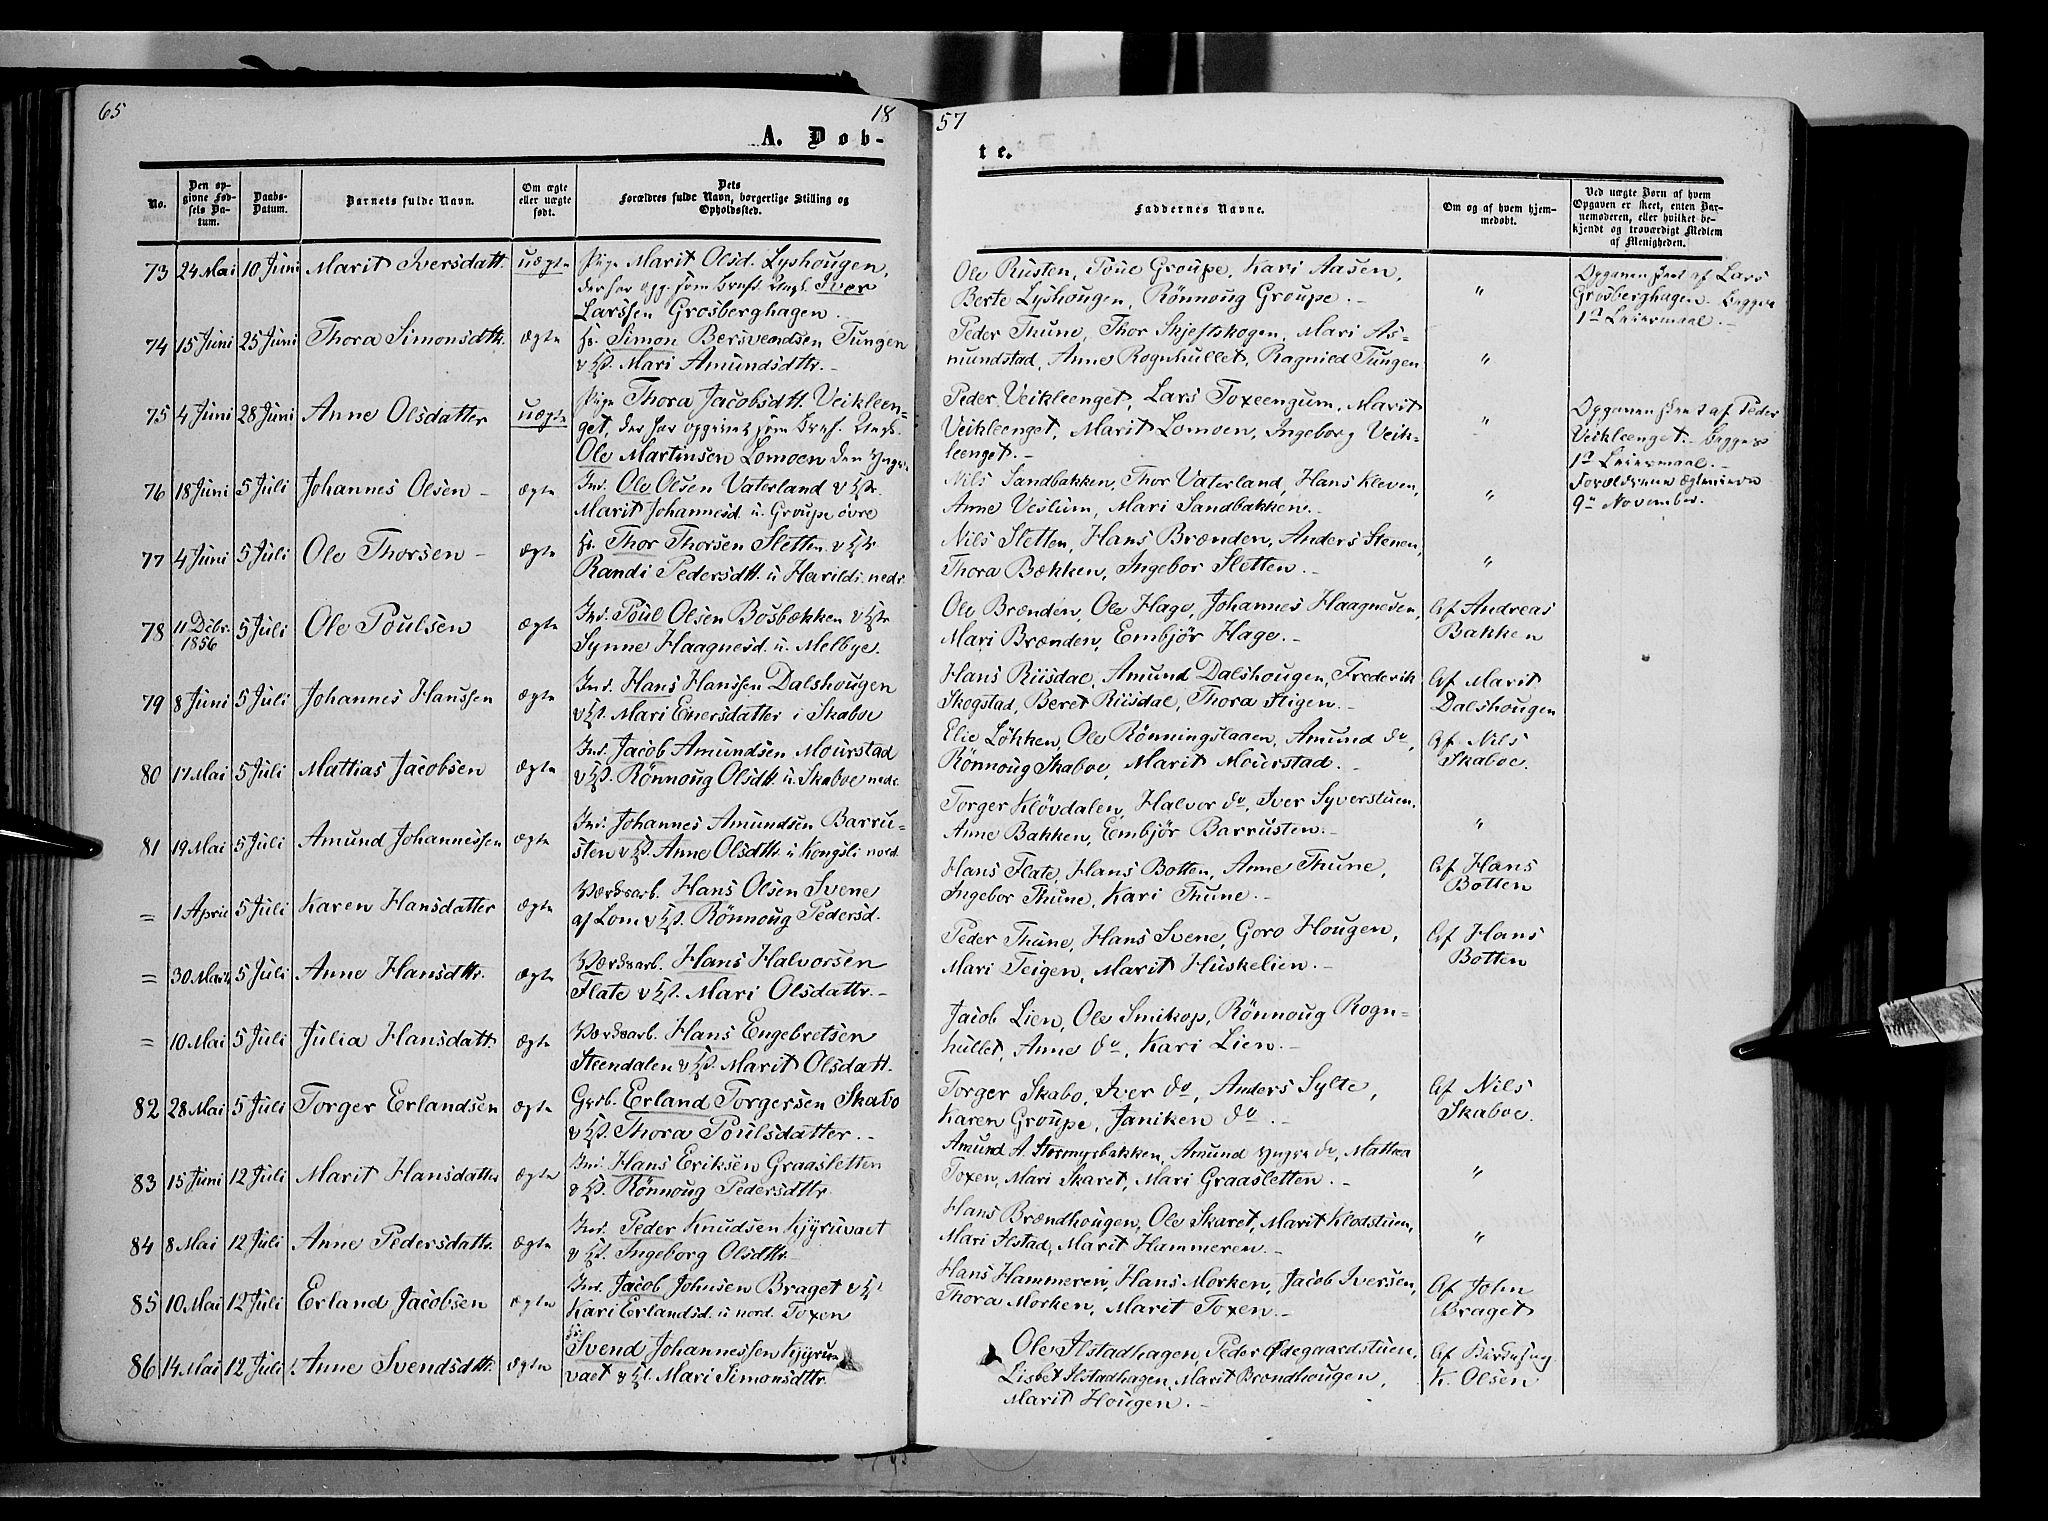 65
18
57
A. Döb-
te.
No.
Den op-
givne Fød-
sels Da-
tum.
Daabs-
Datum.
Barnets fulde Navn.
Om ægte
eller uægte
født.
Dets
Forældres fulde Navn, borgerlige Stilling og
Opholdssted.
Faddernes Navne.
Om og af hvem hjem-
medøbt.
Ved uægte Børn af hvem
Opgaven er skeet, enten Bar-
nemoderen, eller hvilket be-
kjendt og troværdigt Medlem
af Menigheden.
73 24 Mai 10 Juni Marit Iversdatt. uægte Pige Marit Olsd. Lyshougen,
der har opg. som Barnef. Ungk. Iver
Larssen Grosberghagen.
Ole Rusten, Toue Groupe, Kari Aasen,
Berte Lyshougen, Rönnoug Groupe. "
Opgaven skeet af Lars
Grosberghagen. Begges
1ste Leiermaal.
74 15 Juni 25 Juni Thora Simonsdtr. ægte Hr. Simon Bersvendsen Tungen
v Hst. Mari Amundsdttr.
Peder Thune, Thor Skjeftskogen, Mari As-
mundstad, Anne Rognhullet, Ragnild Tungen "
75 4 Juni 28 Juni Anne Olsdatter uægte Pige Thora Jacobsdtt. Veikleen-
get, der har opgivet som Barnef. Ungk.
Ole Martinsen Lomoen den Yngre
Peder Veikleenget, Lars Toxeengum, Marit
Veikleenget, Marit Lomoen, Ingeborg Veik-
leenget. "
Opgaven skeet af Peder
Veikleenget. Begges
1ste Leiermaal.
76 18 Juni 5 Juli Johannes Olsen ægte Ind. Ole Olsen Vaterland v Hstr.
Marit Johannesd. u. Groupe övre
Nils Sandbakken, Thor Vaterland, Hans Kleven,
Anne Veslum, Mari Sandbakken. "
Forældrene ægteviede
9de November.
77 4 Juni 5 Juli Ole Thorsen ægte Hr. Thor Thorsen Sletten v Hstr.
Randi Pedersdtt. u Harildst. nedr.
Nils Sletten, Hans Brænden, Anders Stenen,
Thora Bækken, Ingebor Sletten. "
78 11 Decbr. 1856 5 Juli Ole Poulsen ægte Ind. Poul Olsen Bosbækken v Hstr.
Synne Haagnesd. u. Melbye.
Ole Brænden, Ole Hage, Johannes Haagnesen,
Mari Brænden, Embjör Hage.
Af Andreas
Bakken
79 8 Juni 5 Juli Johannes Hanssen ægte Ind. Hans Hanssen Dalshougen
v Hst. Mari Enersdatter i Skaboe
Hans Riisdal, Amund Dalshougen, Frederik
Skogstad, Beret Riisdal, Thora Stigen.
Af Marit
Dalshougen
80 17 Mai 5 Juli Mattias Jacobsen ægte Ind. Jacob Amundsen Mourstad
v Hst. Rönnoug Olsdtt. u. Skaboe nedr.
Elie Lökken, Ole Rönningslaaen, Amund do,
Rönnoug Skaboe, Marit Mourstad.
Af Nils
Skaboe.
81 19 Mai 5 Juli Amund Johannessen ægte Ind. Johannes Amundsen Barru-
sten v Hst. Anne Olsdttr. u Kongsli nord.
Torger Klövdalen, Halvor do, Iver Syverstuen,
Anne Bakken, Embjör Barrusten. "
= 1 April 5 Juli Karen Hansdatter ægte Værksarb. Hans Olsen Svene
af Lom v Hst. Rönnoug Pedersd.
Hans Flate, Hans Botten, Anne Thune,
Ingebor Thune, Kari Thune.
Af Hans
Botten
= 30 Marts 5 Juli Anne Hansdttr. ægte Værksarb. Hans Halvorsen
Flate v Hst. Mari Olsdattr.
Peder Thune, Hans Svene, Goro Hougen,
Mari Teigen, Marit Huskelien.
Af Hans
Botten
= 10 Mai 5 Juli Julia Hansdatt. ægte Værksarb. Hans Engebretsen
Steendalen v Hst. Marit Olsdatt.
Jacob Lien, Ole Smikop, Rönnoug Rogn-
hullet, Anne do, Kari Lien.
82 28 Mai 5 Juli Torger Erlandsen ægte Gsrb. Erland Torgersen Skabo
v Hst. Thora Poulsdatter.
Torger Skabo, Iver do, Anders Sylte,
Karen Groupe, Janiken do.
Af Nils
Skaboe.
83 15 Juni 12 Juli Marit Hansdatter ægte Ind. Hans Eriksen Graasletten
v Hst. Rönnoug Pedersdttr.
Amund A. Stormyrbakken, Amund Yngre do, Mattea
Toxen, Mari Skaret, Mari Graasletten. "
84 8 Mai 12 Juli Anne Pedersdattr. ægte Ind. Peder Knudsen Kjyruvaet
v Hst. Ingeborg Olsdttr.
Hans Brændhougen, Ole Skaret, Marit Klodstuen,
Mari Ilstad, Marit Hammeren. "
85 10 Mai 12 Juli Erland Jacobsen ægte Ind. Jacob Johnsen Braget v Hst.
Kari Erlandsd. u nord. Toxen
Hans Hammeren, Hans Morken, Jacob Iversen,
Thora Morken, Marit Toxen.
Af John
Braget
86 14 Mai 12 Juli Anne Svendsdttr. ægte Hr. Svend Johannessen Kjyru-
vaet v Hst. Mari Simonsdttr.
Ole Ilstadhagen, Peder Ødegaardstuen,
Lisbet Ilstadhagen, Marit Brondhougen,
Marit Hougen.
Af
K. Olsen